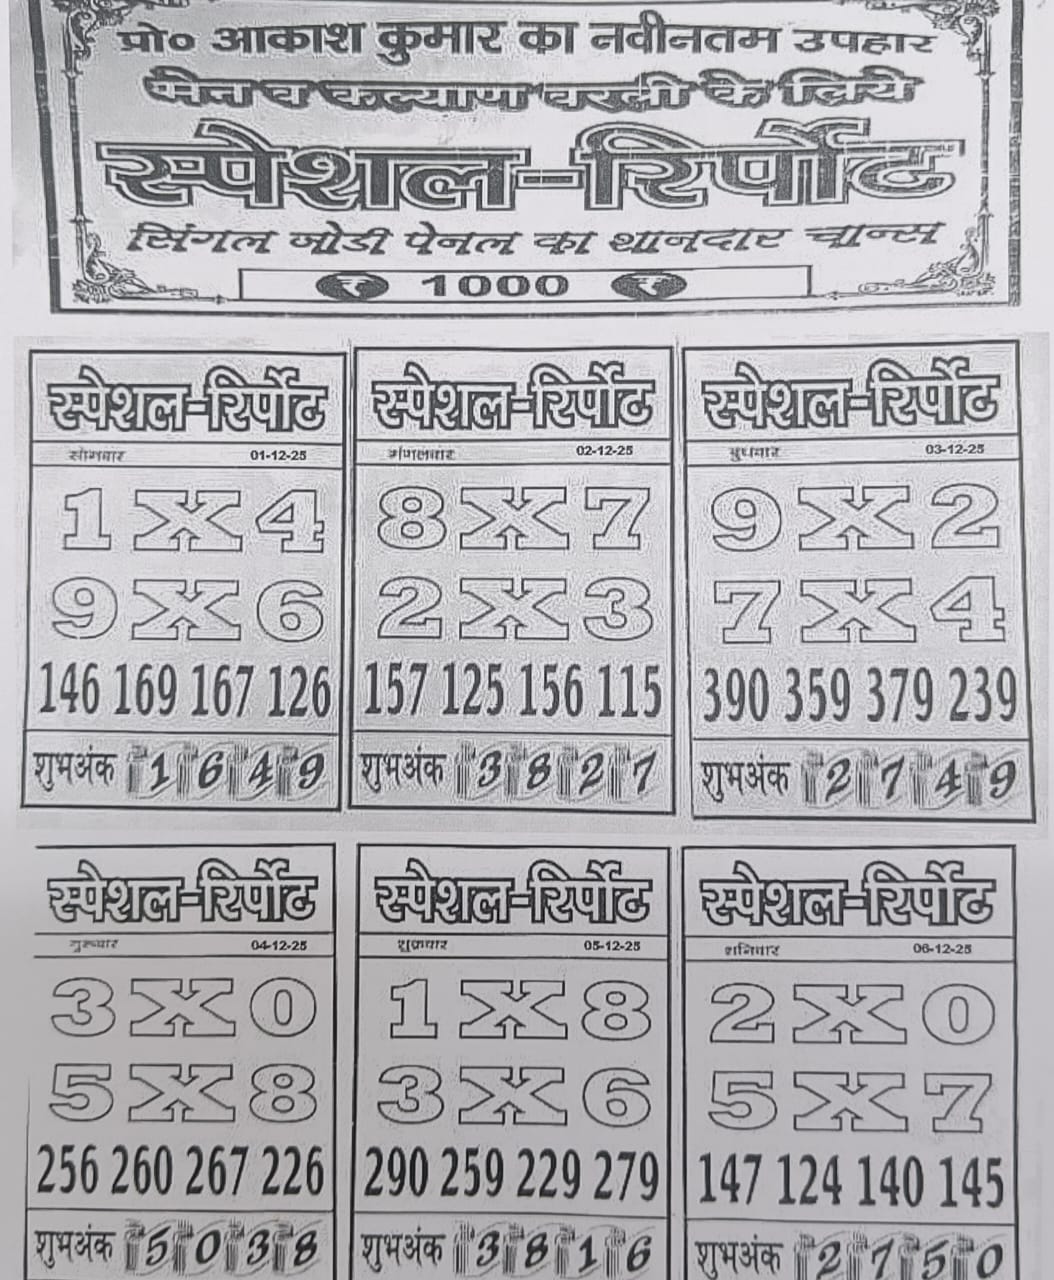 प्रो० आकाश कुमार का नवीनतम उपहार
मेन व कल्याण वरली के लिये
स्पेशल-रिर्पोट
सिंगल जोडी पेनल का शानदार चान्स
₹ 1000 ₹
स्पेशल-रिर्पोट
सोमवार 01-12-25
1 X 4
9 X 6
146 169 167 126
शुभअंक 1 6 4 9
स्पेशल-रिर्पोट
मंगलवार 02-12-25
8 X 7
2 X 3
157 125 156 115
शुभअंक 3 8 2 7
स्पेशल-रिर्पोट
बुधवार 03-12-25
9 X 2
7 X 4
390 359 379 239
शुभअंक 2 7 4 9
स्पेशल-रिर्पोट
गुरूवार 04-12-25
3 X 0
5 X 8
256 260 267 226
शुभअंक 5 0 3 8
स्पेशल-रिर्पोट
शुक्रवार 05-12-25
1 X 8
3 X 6
290 259 229 279
शुभअंक 3 8 1 6
स्पेशल-रिर्पोट
शनिवार 06-12-25
2 X 0
5 X 7
147 124 140 145
शुभअंक 2 7 5 0